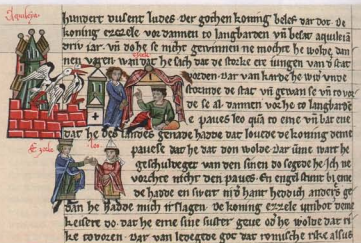 Aquileja.
hundert dusent ludes. der gothen koning beles dar dot. de
koning ezzele vor dannen to langbarden vñ besat aquileiā
driv iar. vñ do he se nicht gewinnen ne mochte he wolde dan
nen varen. wan dat he sach dat de storke ere iungen van d' stat
voeden. dar van karde he wid' unde
stormde de stat. he gewan se vñ to vor
de se al. dannen vor he to langbarde
paves leo quā to eme vñ bat ene
dat he des landes genade hadde dat lovede de koning deme
Ezzele. leo.
pavese dat he dat don wolde. dar umme wart he
gescholdeget van den sinen do segede he. ich ne
vorchte nicht den paves. En engel stunt bi eme
de hadde en swert in d' hant. hedd ich anders ge
dan he hadde mich irslagen. de koning ezzele untbot deme
keisere do. dat he eme sine suster geve. od' he wolde dat ri
ke tovoren. dar van ledegede got dat romische rike alsus